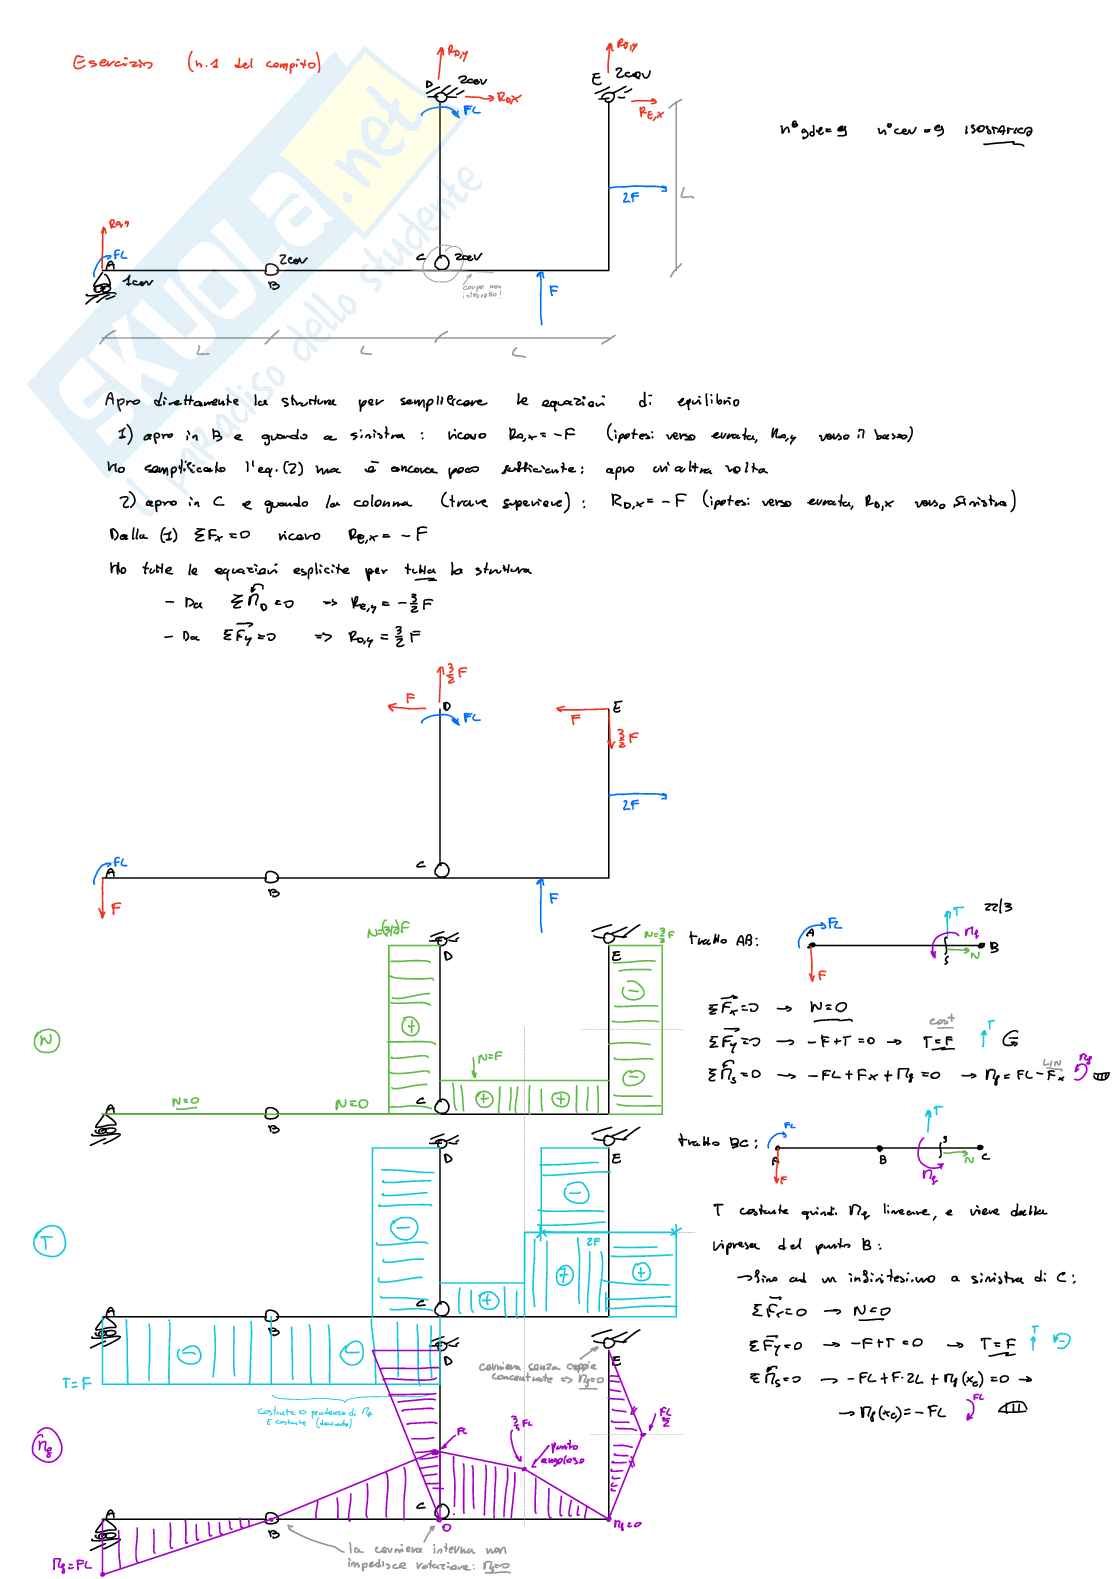 Esercizio (n.1 del compito)
RD,y
2cov
D
RD,X
FL
RE,y
E 2cov
RE,X
n° gdl = 9 n° cov = 9 ISOSTATICA
L
2F
RA,y
FL
A
1cov
2cov
B
C 2cov
F
L L L
SKUOLA.net
il paradiso dello studente
Apro direttamente la struttura per semplificare le equazioni di equilibrio
1) apro in B e guardo a sinistra : ricavo RA,y = -F (ipotesi verso errata, RA,y verso il basso)
Ho semplificato l'eq. (2) ma è ancora poco sufficiente: apro un'altra volta
2) apro in C e guardo la colonna (trave superiore) : RD,x = -F (ipotesi verso errata, RD,x verso sinistra)
Dalla (1) ΣFx=0 ricavo RE,x = -F
Ho tutte le equazioni esplicite per tutta la struttura
- Da ΣMD=0 => RE,y = -3/2F
- Da ΣFy=0 => RD,y = 3/2 F
3/2 F
F
D
FL
E
F
3/2 F
2F
FL
A
F
B
C
F
N=(3/2)F
D
N=3/2 F
E
N
N=F
A
N=0
B
N=0
C
tratto AB:
FL
A
F
T
22/3
Mf
S
N
B
ΣFx=0 → N=0
ΣFy=0 → -F+T=0 → T=F cost
ΣMS=0 → -FL+Fx+Mf=0 → Mf=FL-Fx LIN
tratto BC:
FL
A
F
B
T
S
Mf
N
C
T costante quindi Mf lineare, e viene dalla
ripresa del punto B:
→ fino ad un infinitesimo a sinistra di C:
ΣFx=0 → N=0
ΣFy=0 → -F+T=0 → T=F
ΣMS=0 → -FL+F·2L+Mf(xc)=0 →
→ Mf(xc)=-FL
FL
T
D
E
2F
A
B
C
T=F
costante
E costante (taglio)
D
E
cerniera senza coppie
concentrate => Mf=0
Mf
FL
3/4 FL
punto
angoloso
FL/2
A
B
C
0
Mf=0
Mf=FL
la cerniera interna non
impedisce rotazione: Mf=0